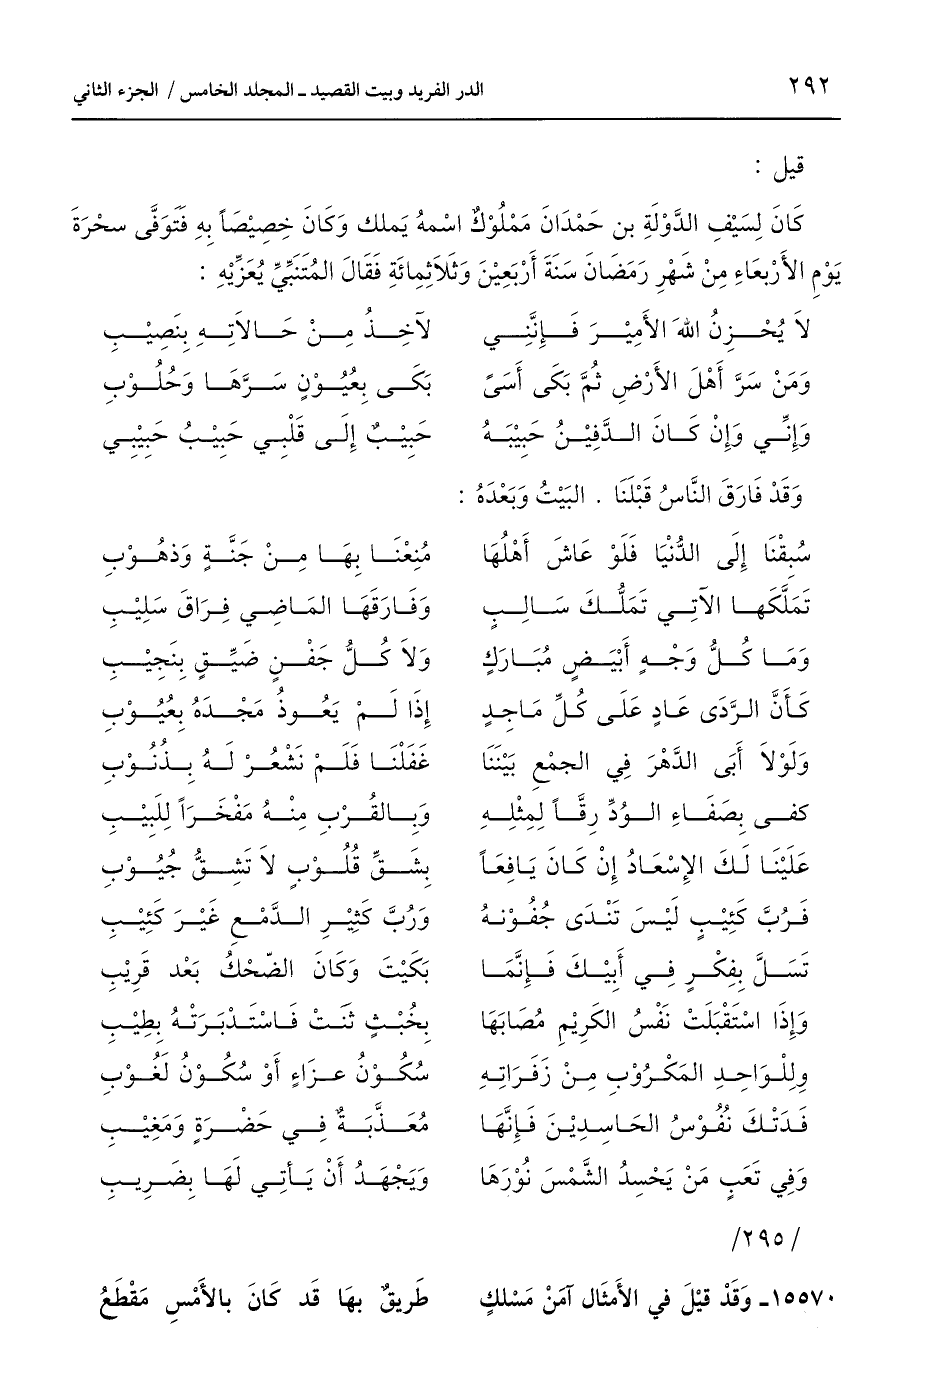 ٢٩٢ الدر الفريد وبيت القصيد ـ المجلد الخامس / الجزء الثاني
قيل :
كَانَ لِسَيْفِ الدَّوْلَةِ بن حَمْدَانَ مَمْلُوكٌ اسْمهُ يَملك وَكَانَ خِصِيْصَاً بِهِ فَتَوَفَّى سحْرَةَ
يَوْمِ الأَرْبعَاءِ مِنْ شَهْرِ رَمَضَانَ سَنَةَ أَرْبَعِيْنَ وَثَلَاثِمائَةِ فَقَالَ المُتَنَبِّيّ يُعَزِّيْهِ :
لَا يُحْزنُ اللهَ الأَمِيْرَ فَإِنَّنِي لآخِذُ مِنْ حَالَاتِهِ بِنَصِيْبِ
وَمَنْ سَرَّ أَهْلَ الأَرْضِ ثُمَّ بَكَى أَسَىً بَكَى بِعُيُوْنٍ سَرَّهَا وَحُلُوْبِ
وَإِنِّي وَإِنْ كَانَ الدَّفِيْنُ حَبِيْبَهُ حَبِيْبٌ إِلَى قَلْبِي حَبِيْبُ حَبِيْبِي
وَقَدْ فَارَقَ النَّاسُ قَبْلَنَا . البَيْتُ وَبَعْدَهُ :
سُبِقْنَا إِلَى الدُّنْيَا فَلَوْ عَاشَ أَهْلُهَا مُنِعْنَا بِهَا مِنْ جَنَّةٍ وَذهُوْبِ
تَمَلَّكهَا الآتِي تَمَلُّكَ سَالِبٍ وَفَارَقَهَا المَاضِي فِرَاقَ سَلِيْبِ
وَمَا كُلُّ وَجْهٍ أَبْيَضٍ مُبَارَكٍ وَلَا كُلُّ جَفْنٍ ضَيِّقٍ بِنَجِيْبِ
كَأَنَّ الرَّدَى عَادٍ عَلَى كُلِّ مَاجِدٍ إِذَا لَمْ يَعُوذُ مَجْدَهُ بِعُيُوْبِ
وَلَوْلَا أَبَى الدَّهْرَ فِي الجمْعِ بَيْنَنَا غَفَلْنَا فَلَمْ نَشْعُرْ لَهُ بِذُنُوْبِ
كفَى بِصَفَاءِ الوُدِّ رِقَّاً لِمِثْلِهِ وَبِالقُرْبِ مِنْهُ مَفْخَرَاً لِلَبِيْبِ
عَلَيْنَا لَكَ الإِسْعَادُ إِنْ كَانَ يَافِعَاً بِشَقِّ قُلُوْبٍ لَا تَشِقُّ جُيُوْبِ
فَرُبَّ كَئِيْبٍ لَيْسَ تَنْدَى جُفُوْنهُ وَرُبَّ كَثِيْرِ الدَّمْعِ غَيْرَ كَئِيْبِ
تَسَلَّ بِفِكْرٍ فِي أَبِيْكَ فَإِنَّمَا بَكَيْتَ وَكَانَ الضّحْكُ بَعْد قَرِيْبِ
وَإِذَا اسْتَقْبَلَتْ نَفْسُ الكَرِيْمِ مُصَابَهَا بِخُبْثٍ ثَنَتْ فَاسْتَدْبَرَتْهُ بِطِيْبِ
وِللْوَاحِدِ المَكْرُوْبِ مِنْ زَفَرَاتِهِ سُكُوْنُ عزَاءٍ أَوْ سُكُوْنُ لَغُوْبِ
فَدَتْكَ نُفُوْسُ الحَاسِدِيْنَ فَإِنَّهَا مُعَذَّبَةٌ فِي حَضْرَةٍ وَمَغِيْبِ
وَفِي تَعَبٍ مَنْ يَحْسِدُ الشَّمْسَ نُوْرَهَا وَيَجْهَدُ أَنْ يَأتِي لَهَا بِضَرِيبِ
/ ٢٩٥/
١٥٥٧٠ـ وَقَدْ قيْلَ في الأَمثَال آمَنْ مَسْلكٍ طَريقٌ بهَا قَد كَانَ بالأَمْسِ مَقْطَعُ